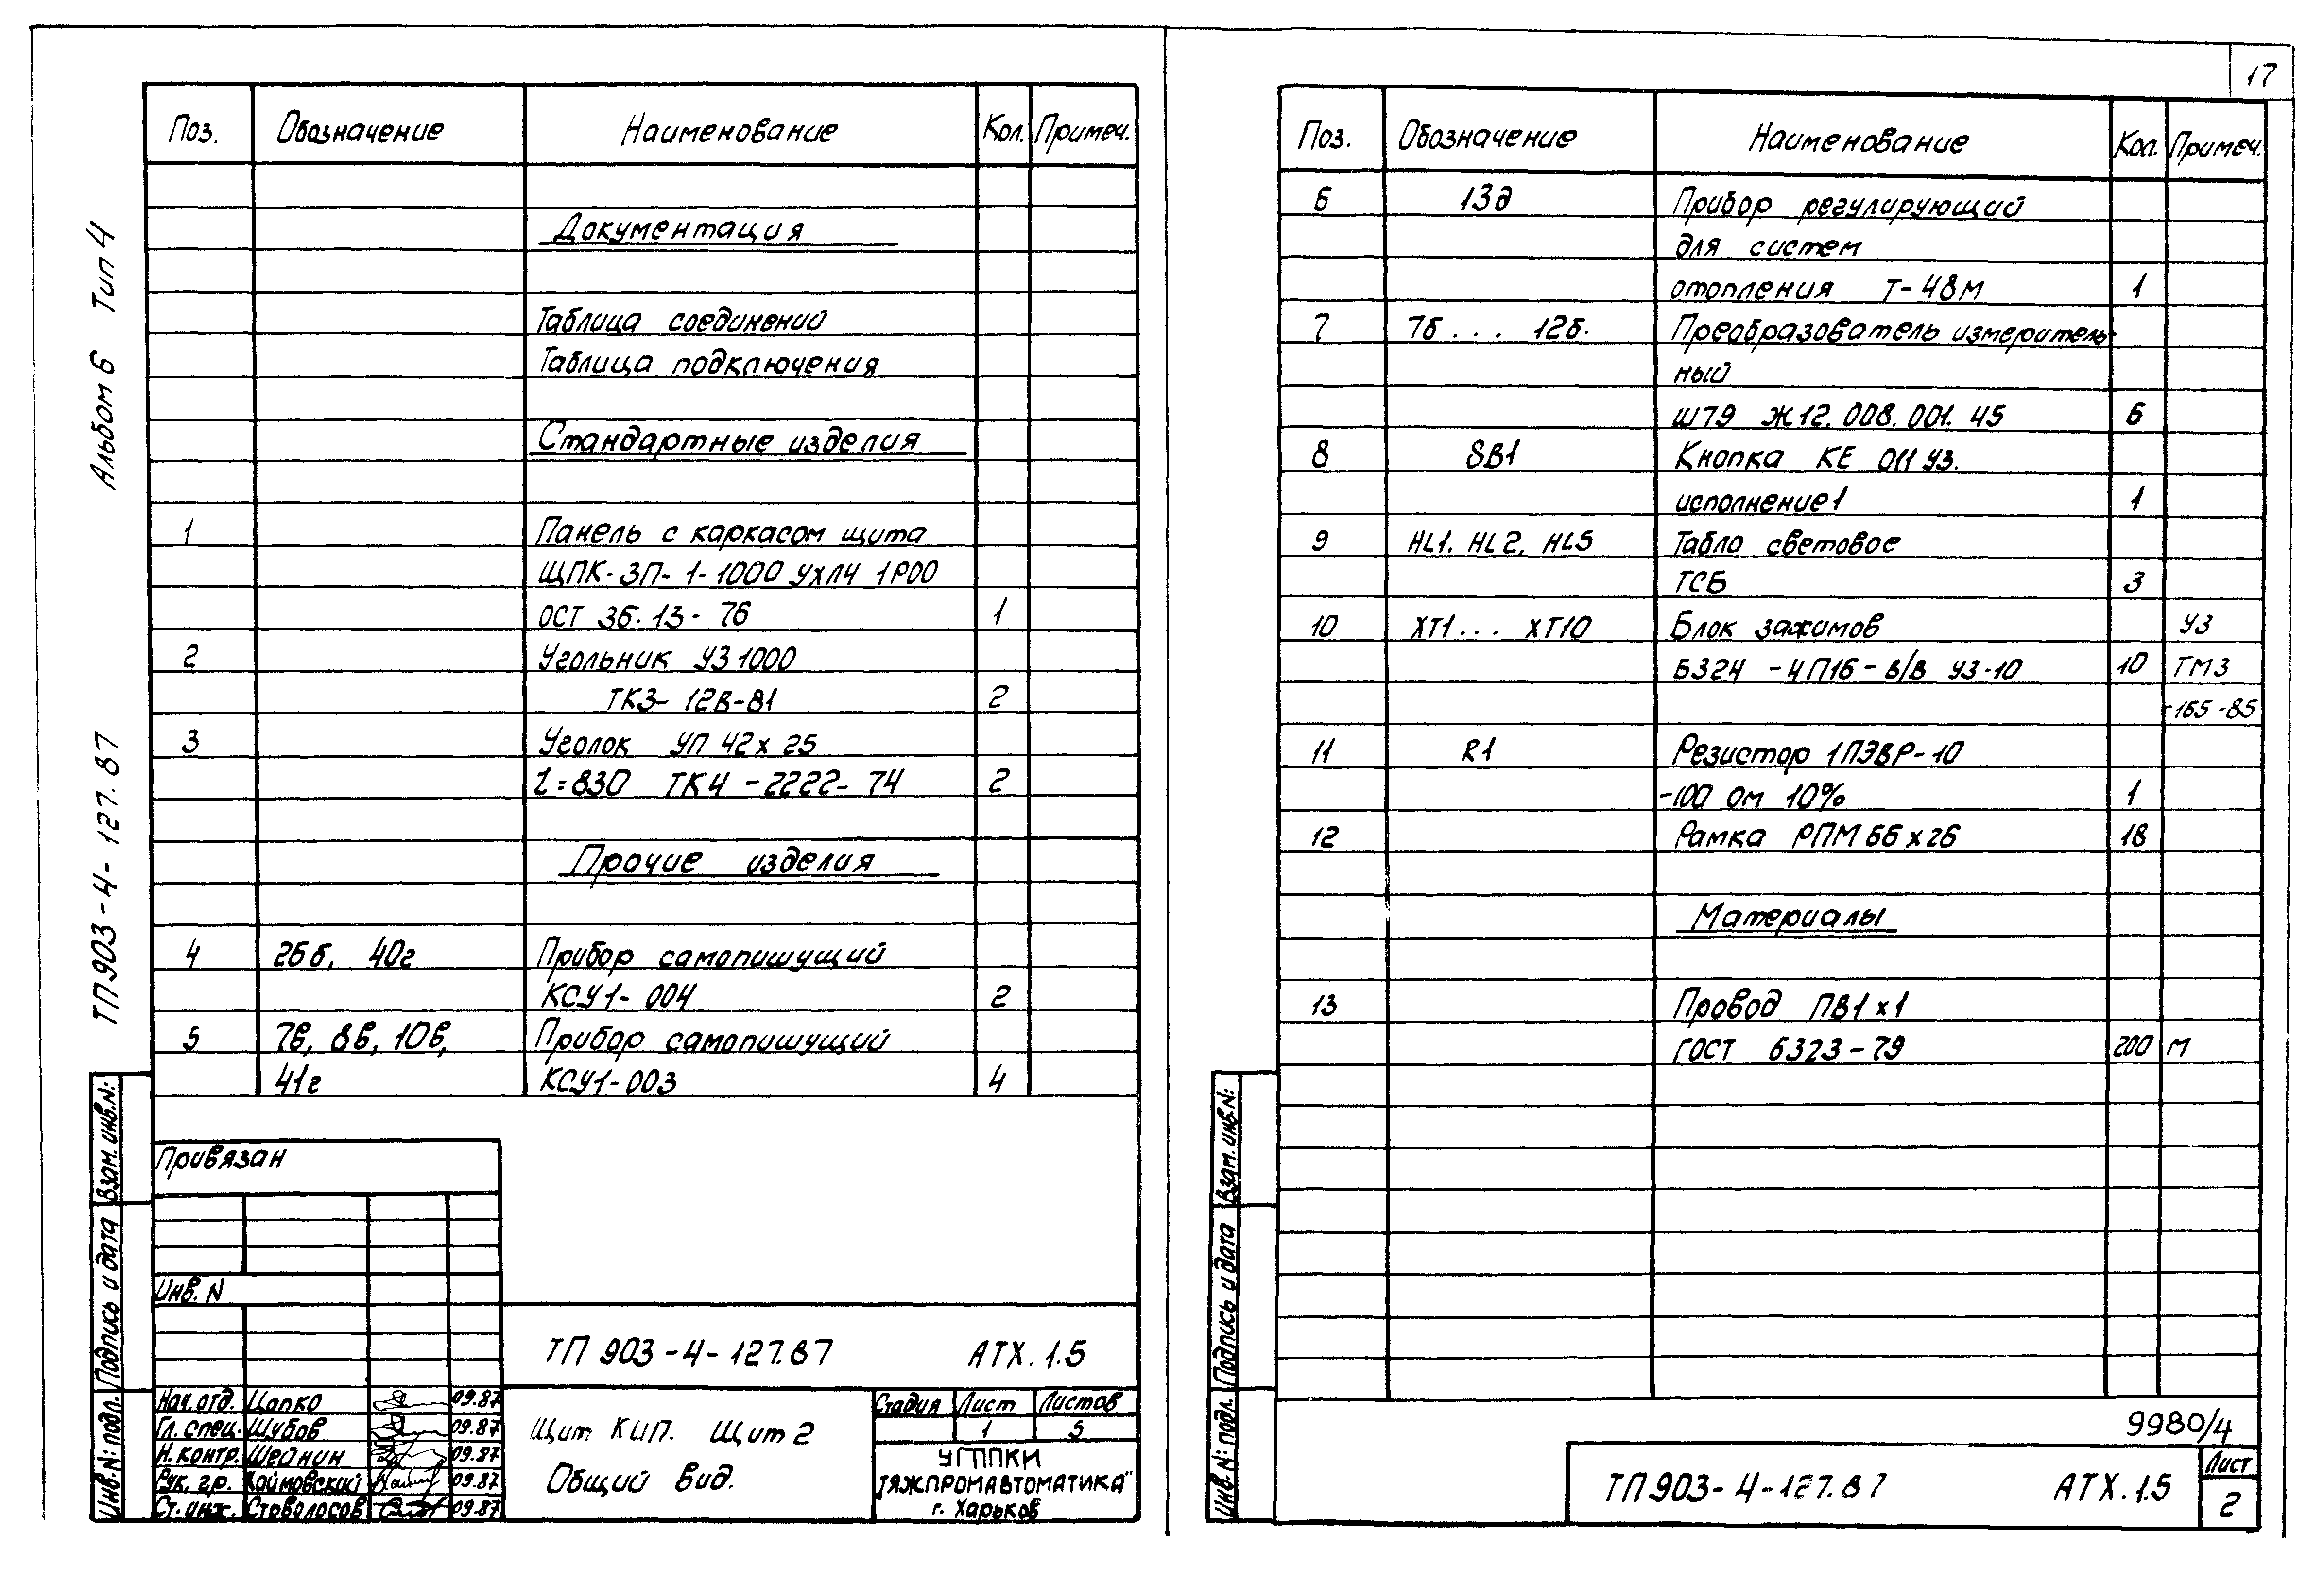 17
Альбом 6 Тип 4
ТП 903-4-127.87
Поз. Обозначение Наименование Кол. Примеч.
Документация
Таблица соединений
Таблица подключения
Стандартные изделия
1 Панель с каркасом щита
ЩПК-ЗП-1-1000 УХЛ4 1Р00
ОСТ 36.13-76 1
2 Угольник УЗ 1000
ТКЗ-128-81 2
3 Уголок УП 42х25
l=830 ТК4-2222-74 2
Прочие изделия
4 26б, 40г Прибор самопишущий
КСУ1-004 2
5 7в, 8в, 10в, Прибор самопишущий
41г КСУ1-003 4
Привязан
Инв. N
ТП 903-4-127.87 АТХ.1.5
Нач. отд. Цапко 09.87
Гл. спец. Шубов 09.87
Н. контр. Шейнин 09.87
Рук. гр. 09.87
Ст. инж. Стволосов 09.87
Щит КИП. Щит 2
Общий вид.
Стадия Лист Листов
1 5
УГППКИ
ТЯЖПРОМАВТОМАТИКА"
г. Харьков
Взам. инв. N:
Подпись и дата
Инв. N: подл.
Поз. Обозначение Наименование Кол. Примеч.
6 13д Прибор регулирующий
для систем
отопления Т-48М 1
7 7б... 12б. Преобразователь измеритель-
ный
Ш79 Ж12.008.001.45 6
8 SB1 Кнопка КЕ 011 У3.
исполнение 1 1
9 HL1. HL2, HL5 Табло световое
ТСБ 3
10 XT1... XT10 Блок зажимов У3
Б324-4П16-В/В У3-10 10 ТМ3
-165-85
11 R1 Резистор 1ПЭВР-10
-100 Ом 10% 1
12 Рамка РПМ 66х26 18
Материалы
13 Провод ПВ1х1
ГОСТ 6323-79 200 м
Взам. инв. N:
Подпись и дата
Инв. N: подл.
9980/4
ТП 903-4-127.87 АТХ.1.5
Лист
2